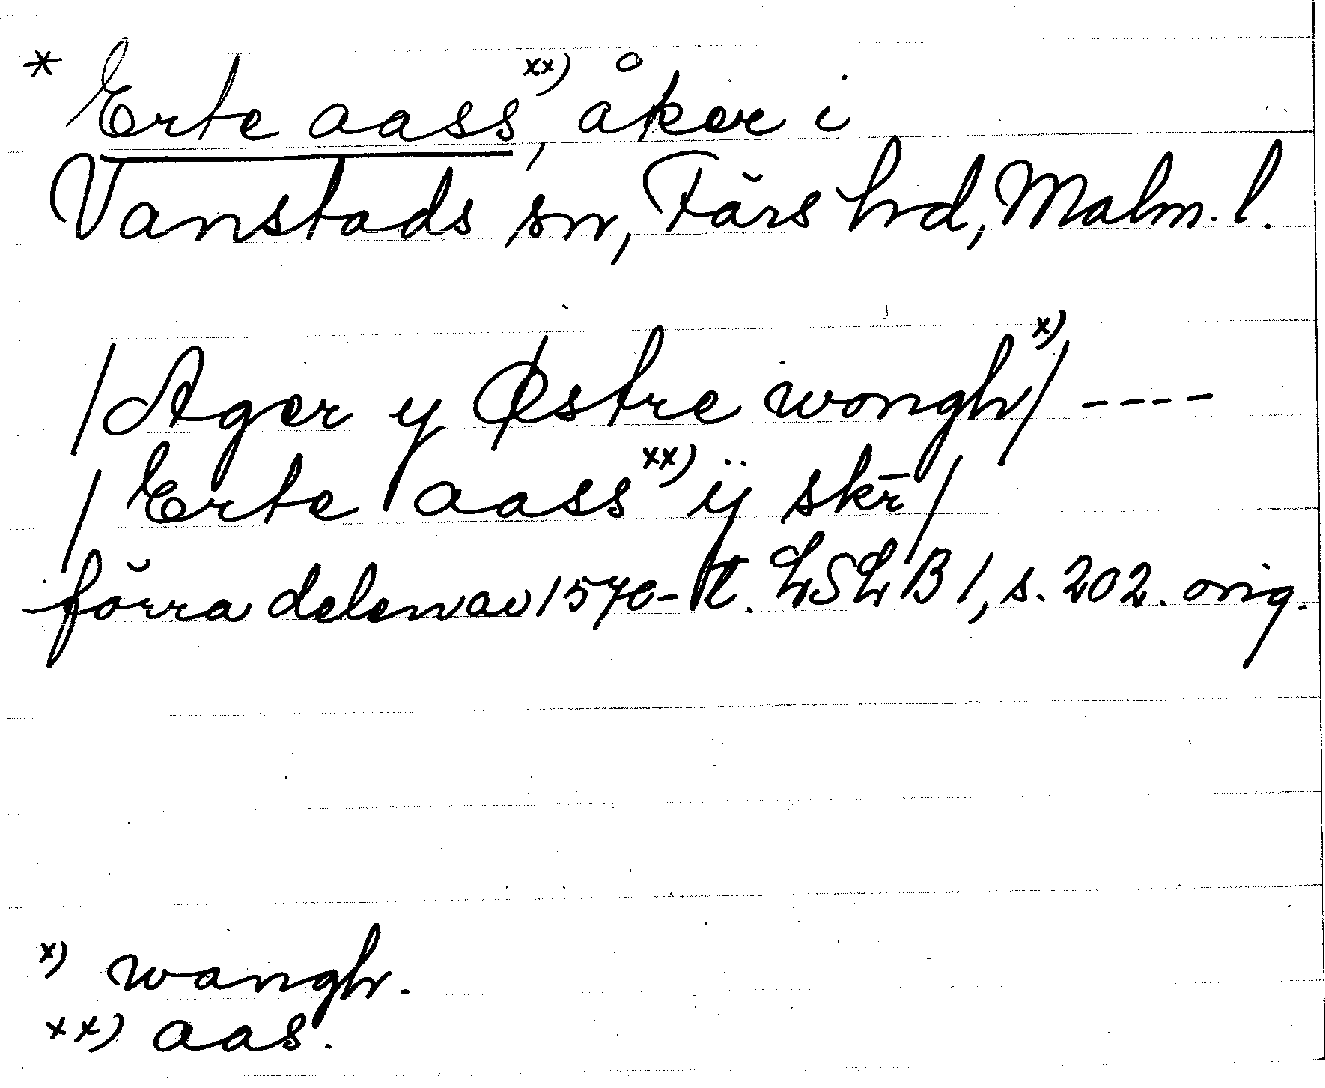 * Erte aass xx), åker i
Vanstads sn, Färs hd, Malm. l.
/Ager y Østre wongh x)/ ----
/Erte aass xx) ÿ skr̄/
förra delen av 1570-t. LSLB 1, s. 202. orig.
x) wangh.
xx) aas.